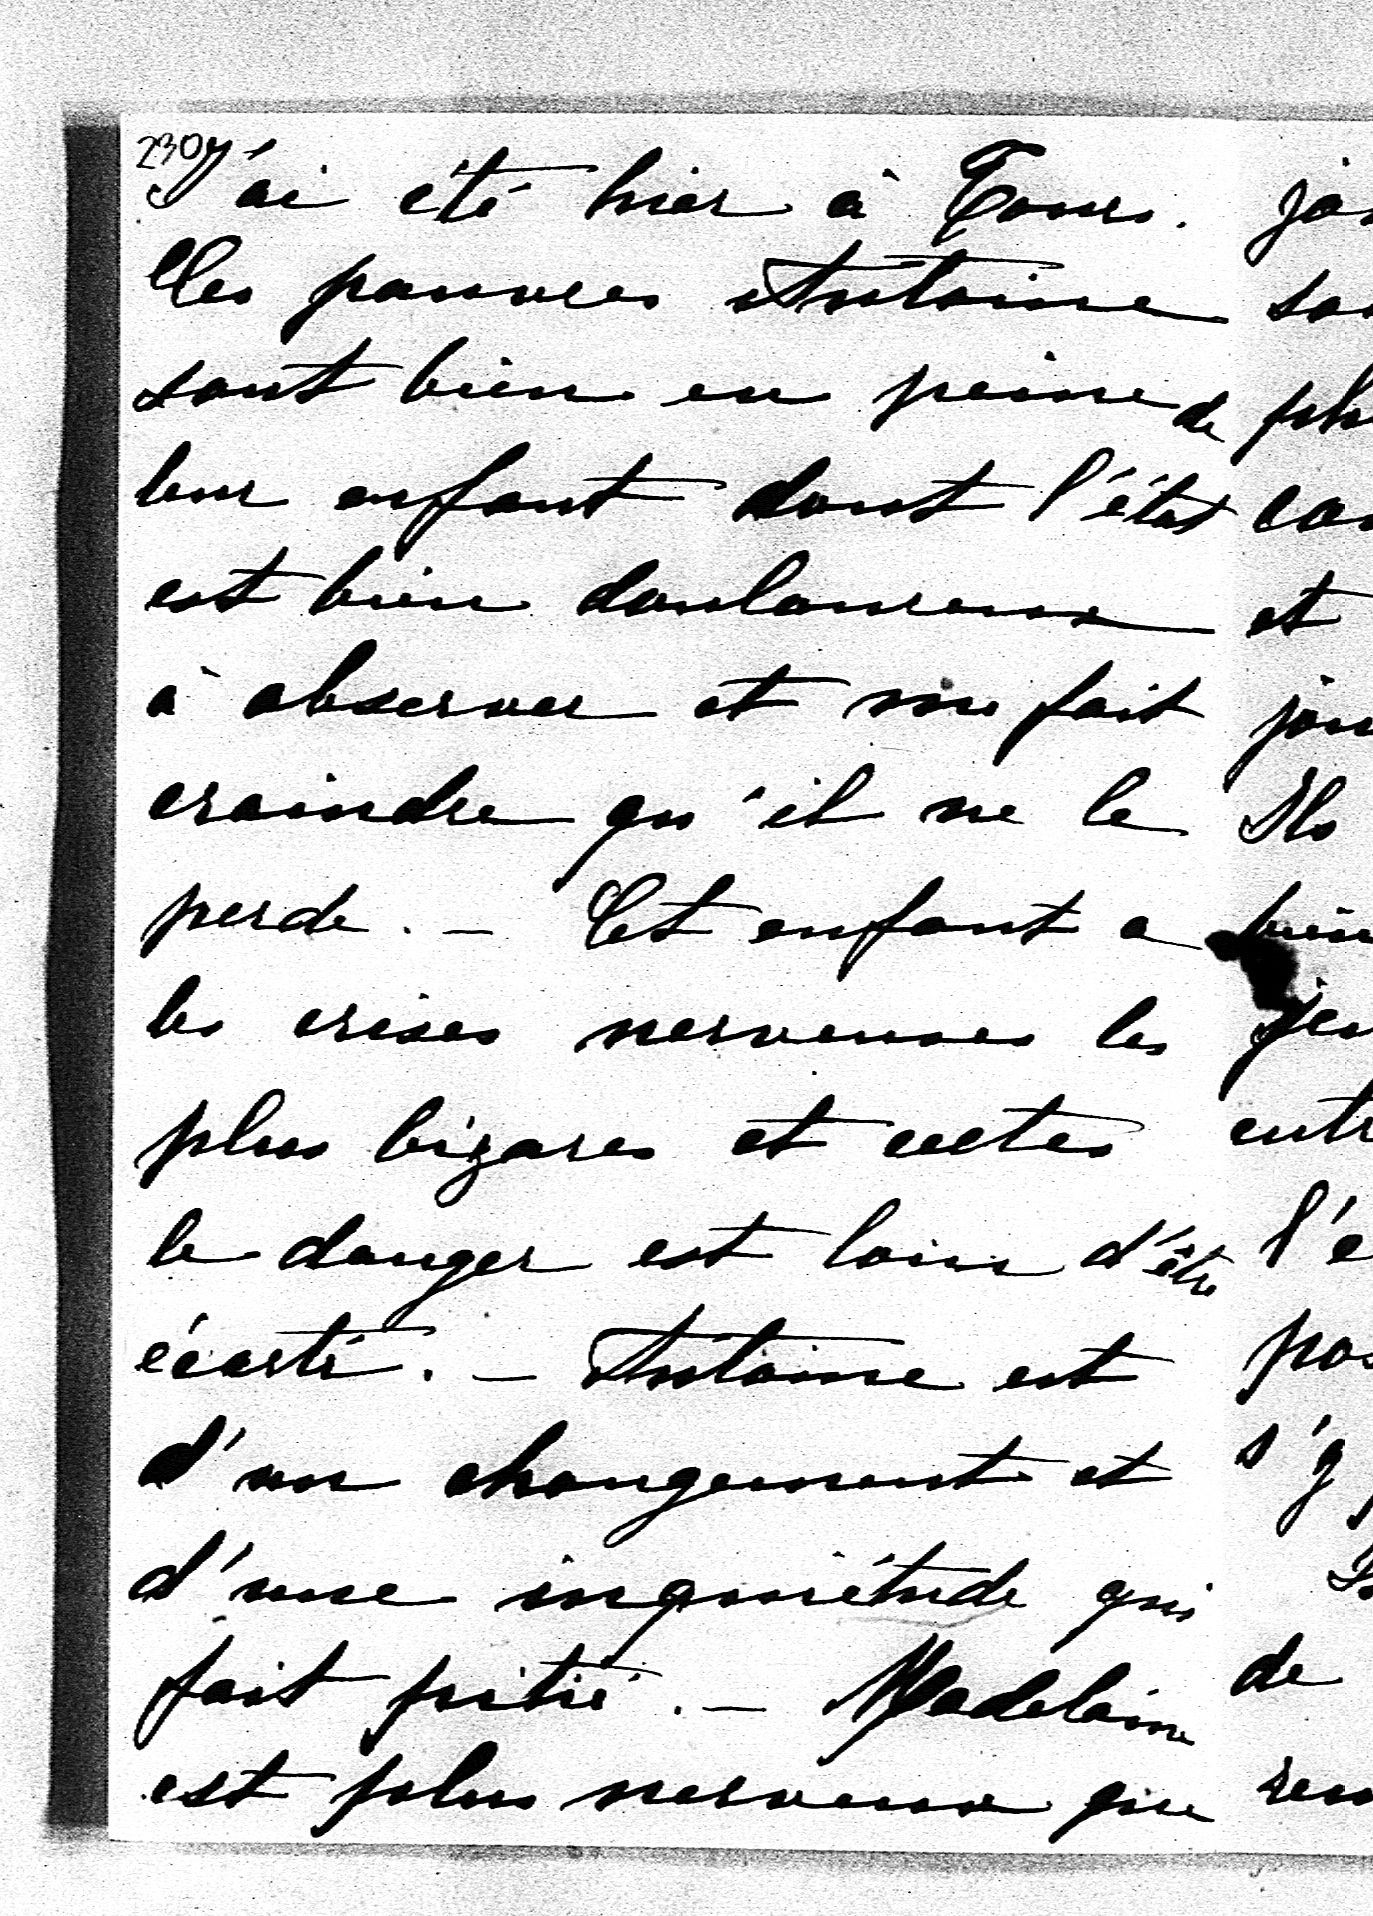 230
J'ai été hier à Tours.
Ces pauvres Antoine
sont bien en peine de
leur enfant dont l'état
est bien douloureux
à observer et me fait
craindre qu'il ne le
perde. — Cet enfant a
les crises nerveuses les
plus bizares et certes
le danger est loin d'être
écarté. — Antoine est
d'un changement et
d'une inquiétude qui
fait pitié. — Madelaine
est plus nerveux que
et
Ils
bien
l'e
s'y
de